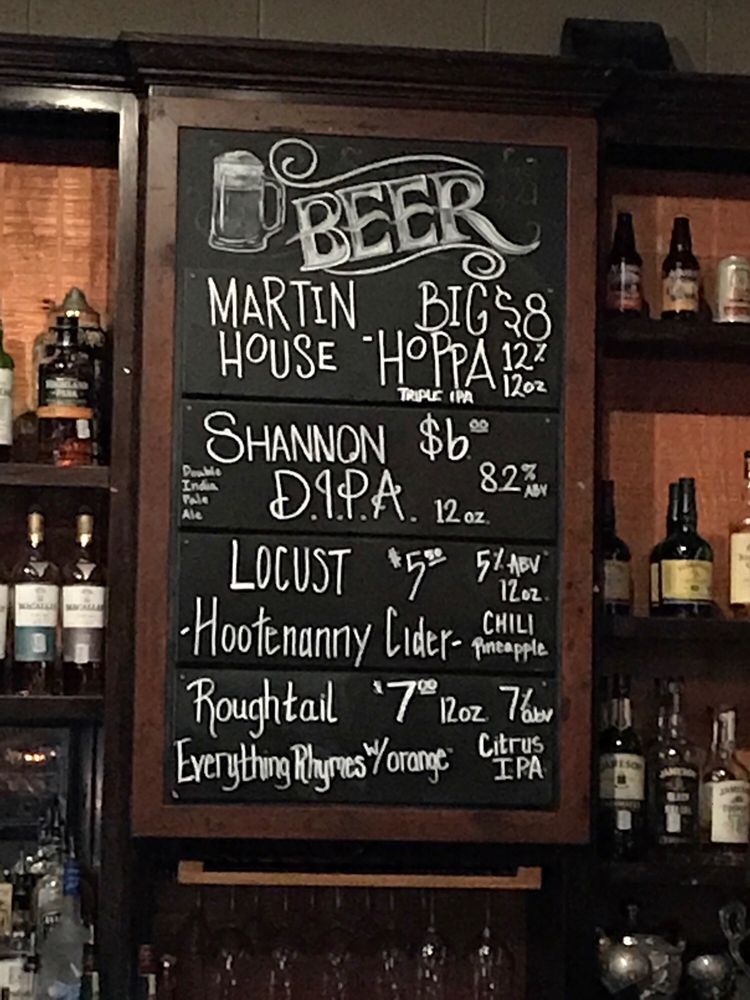 BEER
MARTIN HOUSE
BIG $8
-HOPPA 12%
TRIPLE IPA 12oz
SHANNON $6.00
Double India Pale Ale
D.I.P.A. 12 oz.
8.2% ABV
LOCUST $5.50 5% ABV
12oz.
-Hootenanny Cider- CHILI
Pineapple
Roughtail $7.00 12oz. 7% abv
Everything Rhymes w/orange Citrus
IPA
HIGHLAND
PARK
MACALLAN
MACALLAN
JAMESON
JAMESON